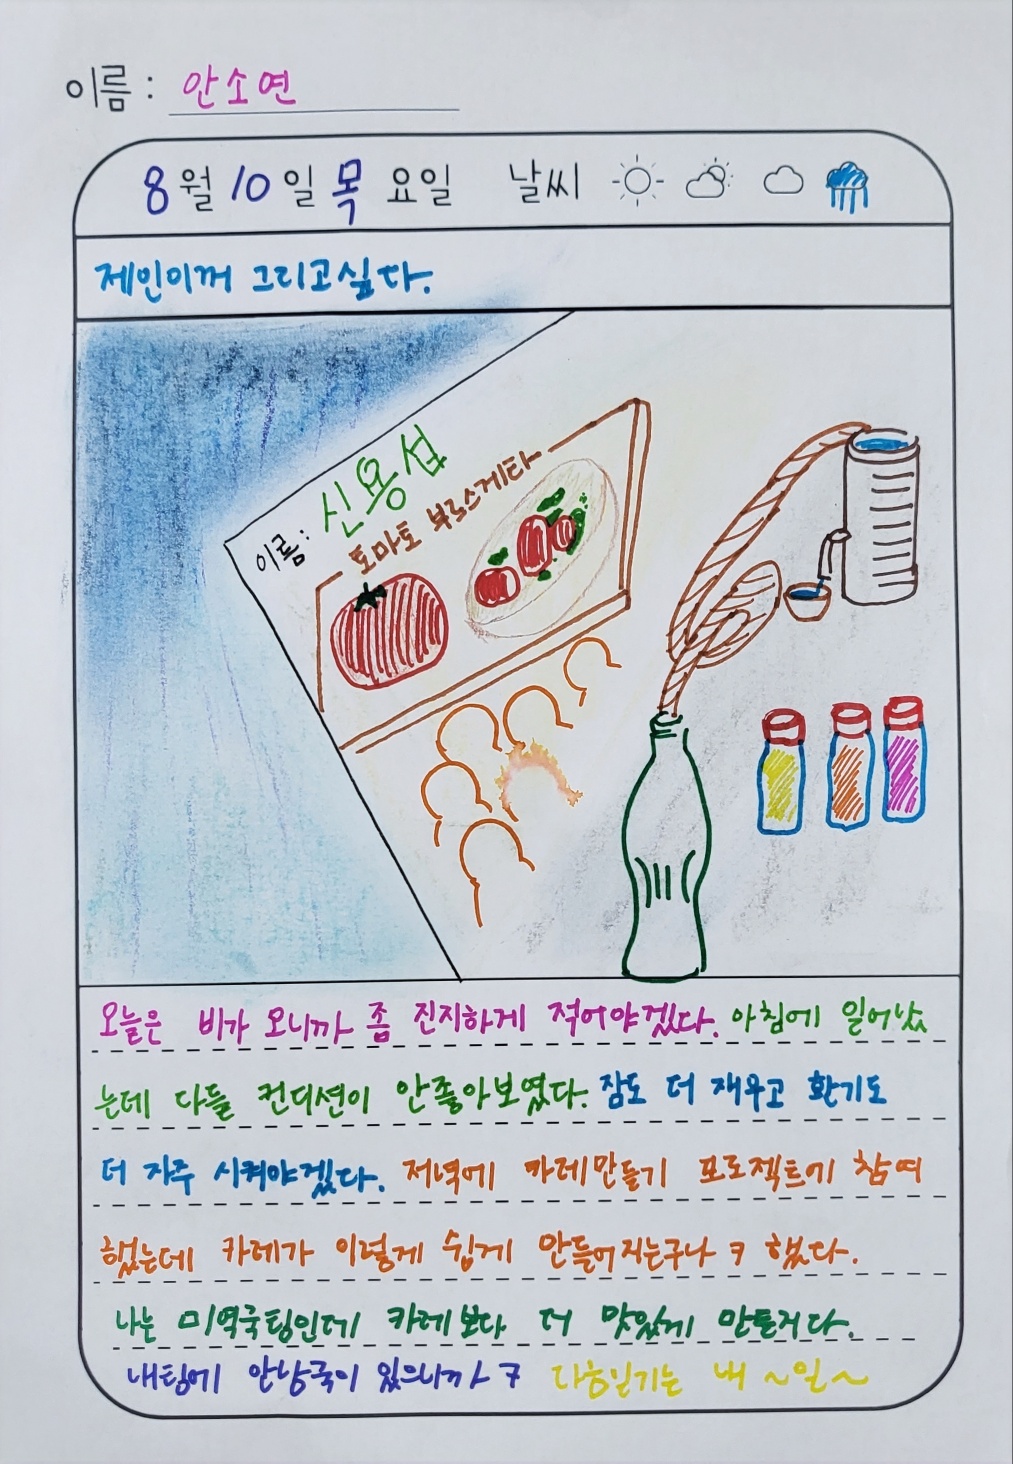 이름 : 안소연
8월 10일 목요일 날씨
제인이꺼 그리고싶다.
신용섭
이름:
토마토 부르스게타
오늘은 비가 오니까 좀 진지하게 적어야겠다. 아침에 일어났
는데 다들 컨디션이 안좋아보였다. 잠도 더 재우고 환기도
더 자주 시켜야겠다. 저녁에 카레만들기 프로젝트에 참여
했는데 카레가 이렇게 쉽게 만들어지는구나 ㅋ 했다.
나는 미역국팀인데 카레보다 더 맛있게 만들거다.
내팀에 안낭국이 있으니까 ㅋ 다음일기는 내 ~일~